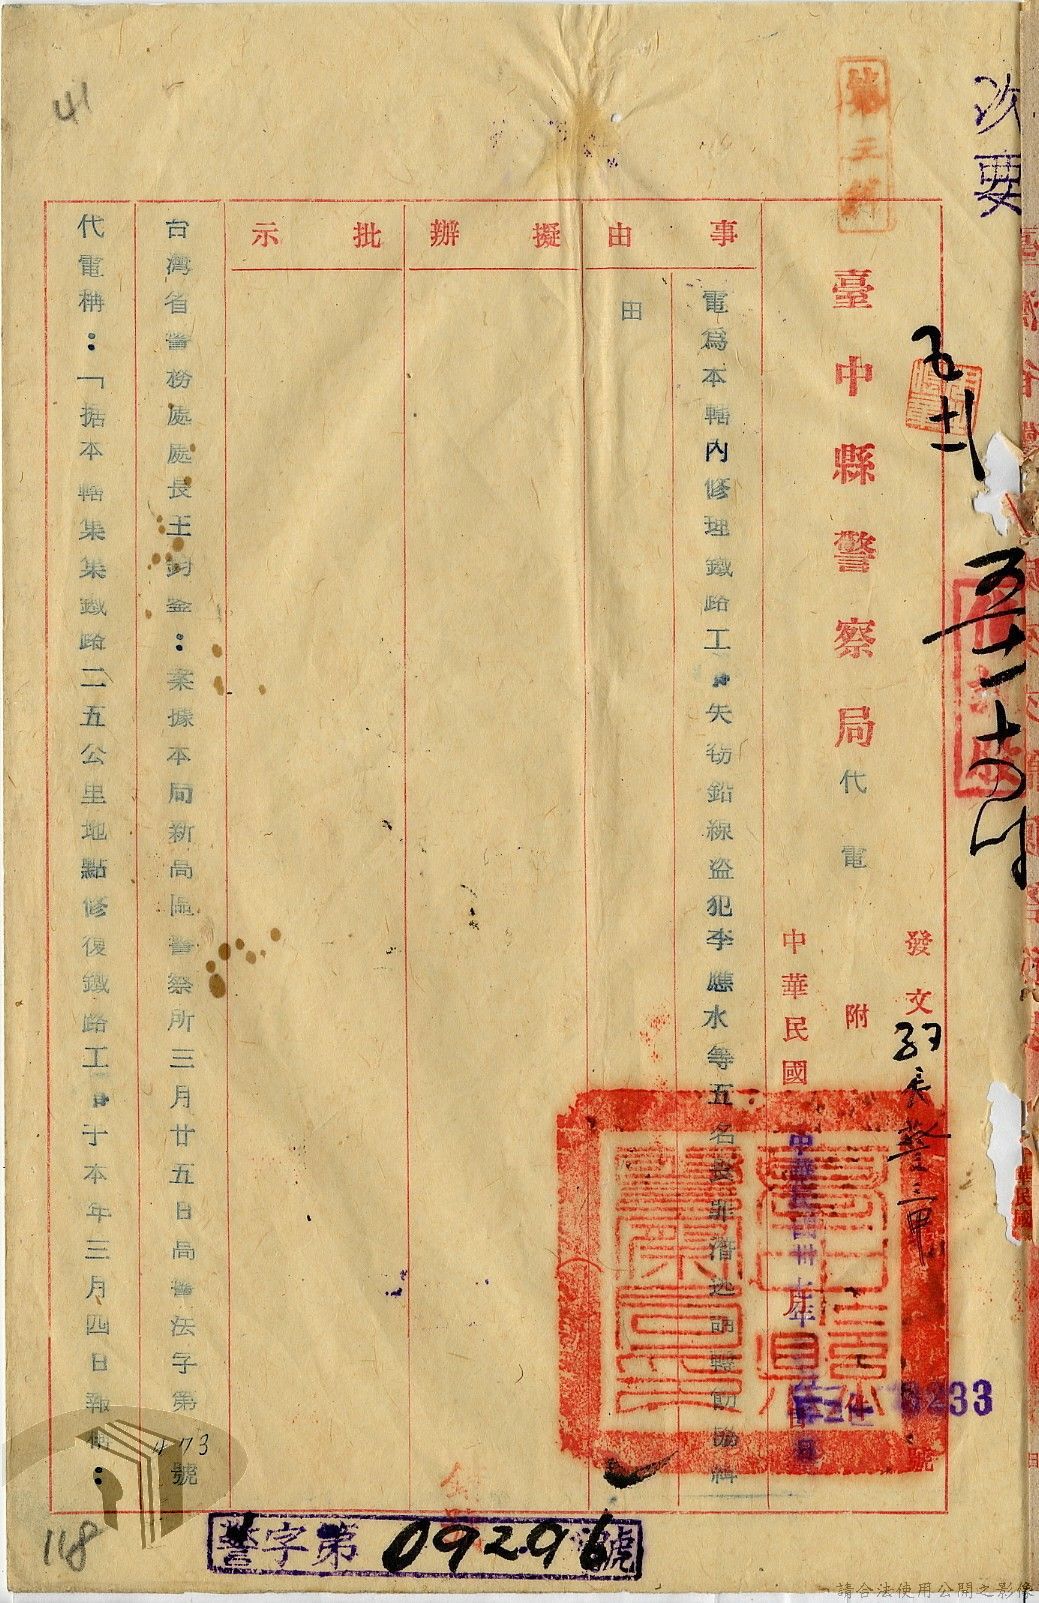 41
次要
臺中縣警察局代電
發文
號
附
中華民國
中華民國卅七年
8233
事由
擬辦
批示
電為本轄內修理鐵路工
失窃鉛線盜犯李應水等五名畏罪潛逃請轉飭協緝
由
台灣省警務處處長王鈞鉴：案據本局新高區警察所三月廿五日高警法字第473號
代電稱：「据本轄集集鐵路二五公里地點修復鐵路工
于本年三月四日報稱：
警字第09296號
118
請合法使用公開之影像